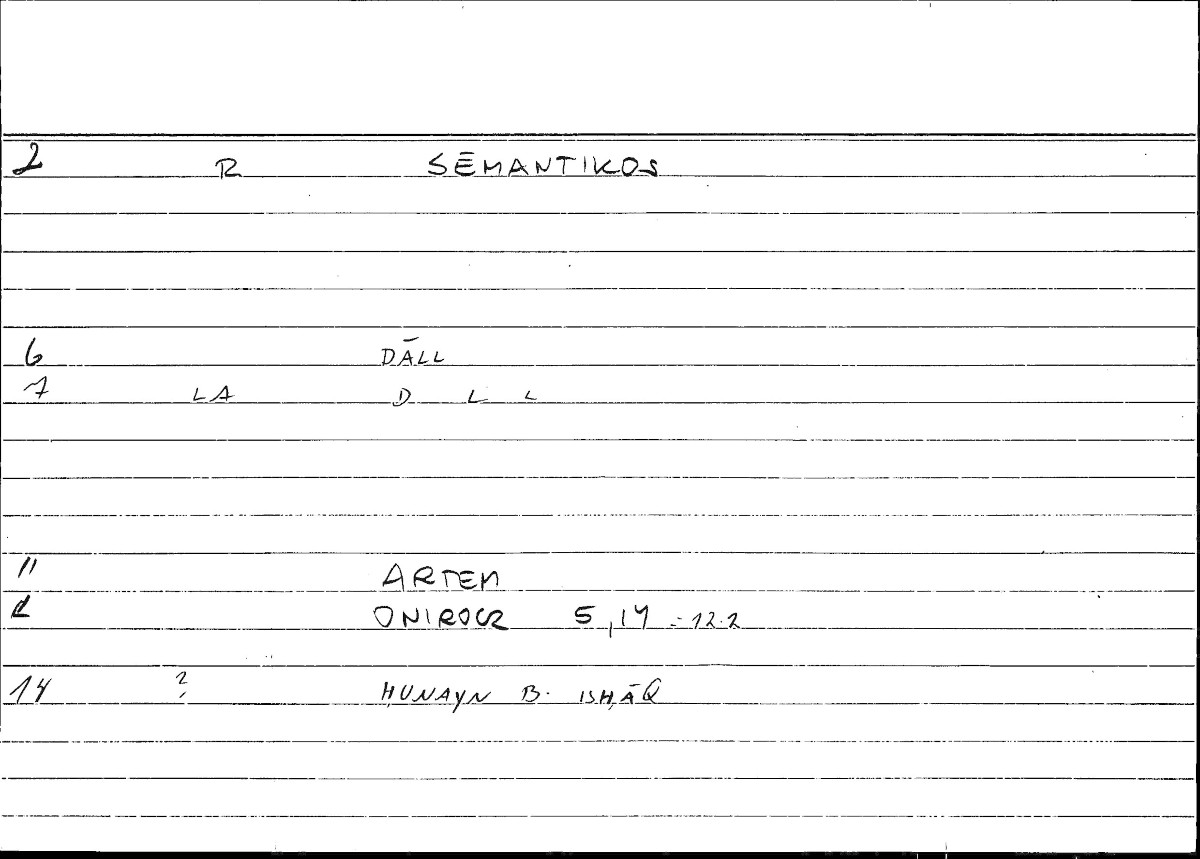 2 R SĒMANTIKOS
6 DĀLL
7 LA D L L
11 ARTEM
ONIROCR 5,14 = 12.2
14 ? ḤUNAYN B. ISḤĀQ